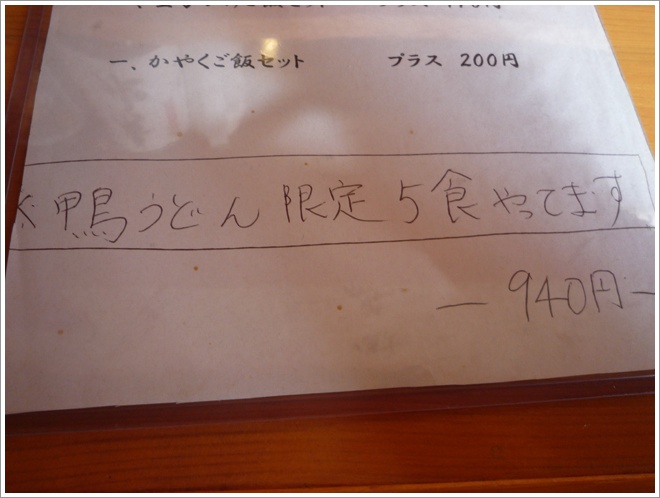 一、かやくご飯セット プラス 200円
鴨うどん 限定 5食 やってます
― 940円 ―